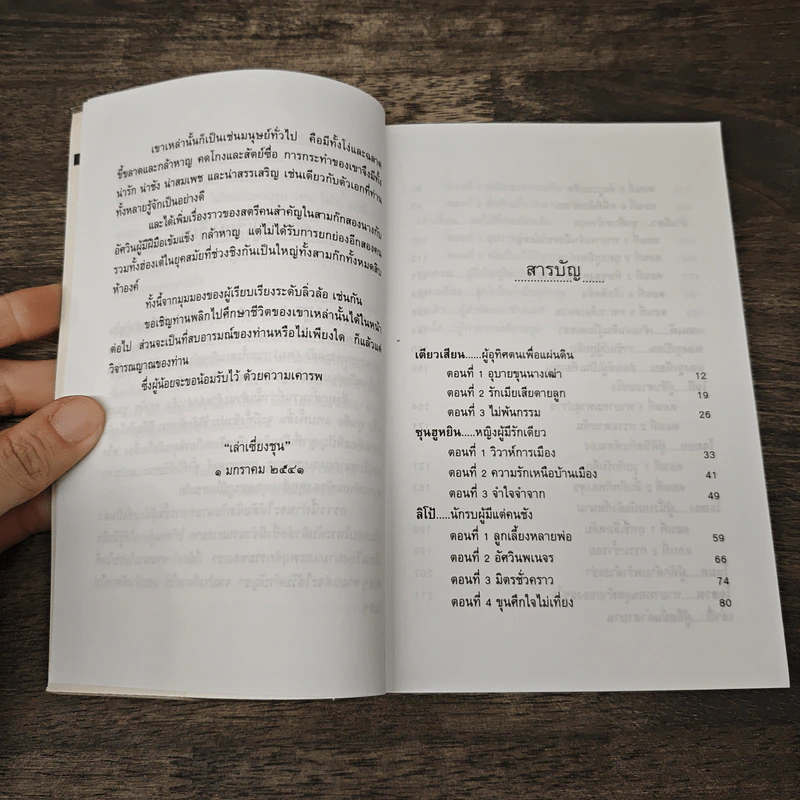 เขาเหล่านั้นก็เป็นเช่นมนุษย์ทั่วไป คือมีทั้งโง่และฉลาด
ขี้ขลาดและกล้าหาญ คดโกงและสัตย์ซื่อ การกระทำของเขาจึงมีทั้ง
น่ารัก น่าชัง น่าสมเพช และน่าสรรเสริญ เช่นเดียวกับตัวเอกที่ท่าน
ทั้งหลายรู้จักเป็นอย่างดี
และได้เพิ่มเรื่องราวของสตรีคนสำคัญในสามก๊กสองนางกับ
อัศวินผู้มีฝีมือเข้มแข็ง กล้าหาญ แต่ไม่ได้รับการยกย่องอีกสองคน
รวมทั้งฮ่องเต้ในยุคสมัยที่ช่วงชิงกันเป็นใหญ่ทั้งสามก๊กทั้งหมดสิบ
ห้าองค์
ทั้งนี้จากมุมมองของผู้เรียบเรียงระดับลิ่วล้อ เช่นกัน
ขอเชิญท่านพลิกไปศึกษาชีวิตของเขาเหล่านั้นได้ในหน้า
ต่อไป ส่วนจะเป็นที่สบอารมณ์ของท่านหรือไม่เพียงใด ก็แล้วแต่
วิจารณญาณของท่าน
ซึ่งผู้น้อยจะขอน้อมรับไว้ ด้วยความเคารพ
“เล่าเซี่ยงชุน”
๑ มกราคม ๒๕๔๑
สารบัญ
เตียวเสียน......ผู้อุทิศตนเพื่อแผ่นดิน
ตอนที่ 1 อุบายขุนนางเฒ่า 12
ตอนที่ 2 รักเมียเสียดายลูก 19
ตอนที่ 3 ไม่พ้นกรรม 26
ซุนฮูหยิน.....หญิงผู้มีรักเดียว
ตอนที่ 1 วิวาห์การเมือง 33
ตอนที่ 2 ความรักเหนือบ้านเมือง 41
ตอนที่ 3 จำใจจำจาก 49
ลิโป้.....นักรบผู้มีแต่คนชัง
ตอนที่ 1 ลูกเลี้ยงหลายพ่อ 59
ตอนที่ 2 อัศวินพเนจร 66
ตอนที่ 3 มิตรชั่วคราว 74
ตอนที่ 4 ขุนศึกใจไม่เที่ยง 80